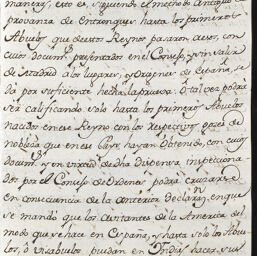 manera, esto es, siguiendo el methodo antiguo
provanza de Entronques hasta los primeros
Abuelos que de estos Reynos pasaron a esos, con
cuios docum.tos presentados en el Consejo, y sin salir
de Madrid a los lugares, y Origenes de España, se
da por suficiente hecha la prueva: O tal vez podrá
ser calificando solo hasta los primeros Abuelos
nacidos en ese Reyno con los respectivos goces de
nobleza que en ese Pays hayan obtenido, con cuios
docum.tos y en virtud de dha dispensa inspecciona
dos por el Consejo de Ordenes podrá cruzarse
en consecuencia de la anterior declaraz.n en que
se mandó que los Cruzantes de la America del
modo que se hace en España, y hasta solo los Abue
los, ó visabuelos puedan en Indias hacer sus